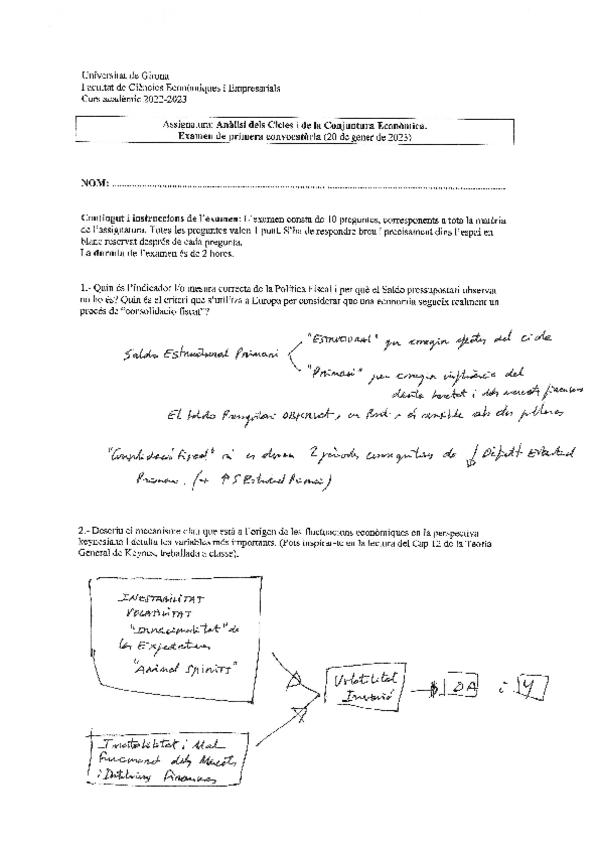 Universitat de Girona
Facultat de Ciències Econòmiques i Empresarials
Curs acadèmic 2022-2023
Assignatura: Anàlisi dels Cicles i de la Conjuntura Econòmica.
Examen de primera convocatòria (20 de gener de 2023)
NOM:
Contingut i instruccions de l'examen: L'examen consta de 10 preguntes, corresponents a tota la matèria
de l'assignatura. Totes les preguntes valen 1 punt. S'ha de respondre breu i precisament dins l'espai en
blanc reservat després de cada pregunta.
La durada de l'examen és de 2 hores.
1.- Quin és l'indicador i/o mesura correcta de la Política Fiscal i per què el Saldo pressupostari observat
no ho és? Quin és el criteri que s'utilitza a Europa per considerar que una economia segueix realment un
procés de "consolidació fiscal"?
"ESTRUCTURAL" per corregir efectes del cicle
Saldo Estructural Primari
"Primari" per corregir influència del
deute heretat i dels mercats financers
El Saldo Pressupostari OBSERVAT, és sensible als dos
"Consolidació Fiscal" si es donen 2 períodes consecutius de ↓ Dèficit Estructural
Primari. (↑ S Estructural Primari)
2.- Descriu el mecanisme clau que està a l'origen de les fluctuacions econòmiques en la perspectiva
keynesiana i detalla les variables més importants. (Pots inspirar-te en la lectura del Cap 12 de la Teoria
General de Keynes, treballada a classe).
INESTABILITAT
VOLATILITAT
"Irracionalitat" de
les Expectatives
"Animal Spirits"
Volatilitat
Inversió
DA i Y
Inestabilitat i Mal
Funcionament dels Mercats
i Institucions Financeres